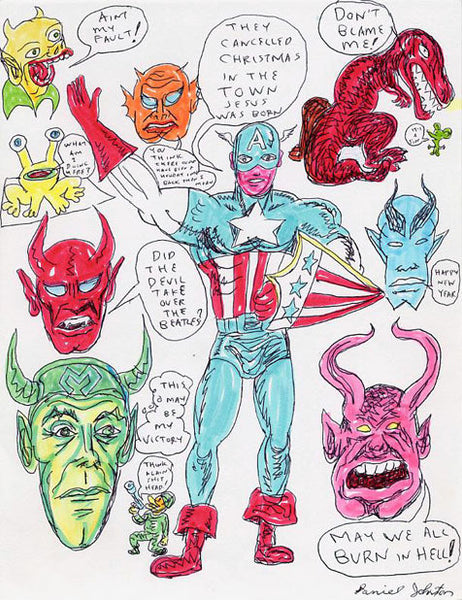 AINT
MY
FAULT!
THEY
CANCELLED
CHRISTMAS
IN THE
TOWN
JESUS
WAS BORN
DON'T
BLAME
ME!
A
WHAT
AM I
DOING
HERE?
YOU
THINK
BACK THAT'S MEAN
DID
THE
DEVIL
TAKE
OVER
THE
BEATLES?
HAPPY
NEW
YEAR
THIS
MAY
BE
MY
VICTORY
THINK
AGAIN
SHIT
HEAD
MAY WE ALL
BURN IN HELL!
Daniel Johnston